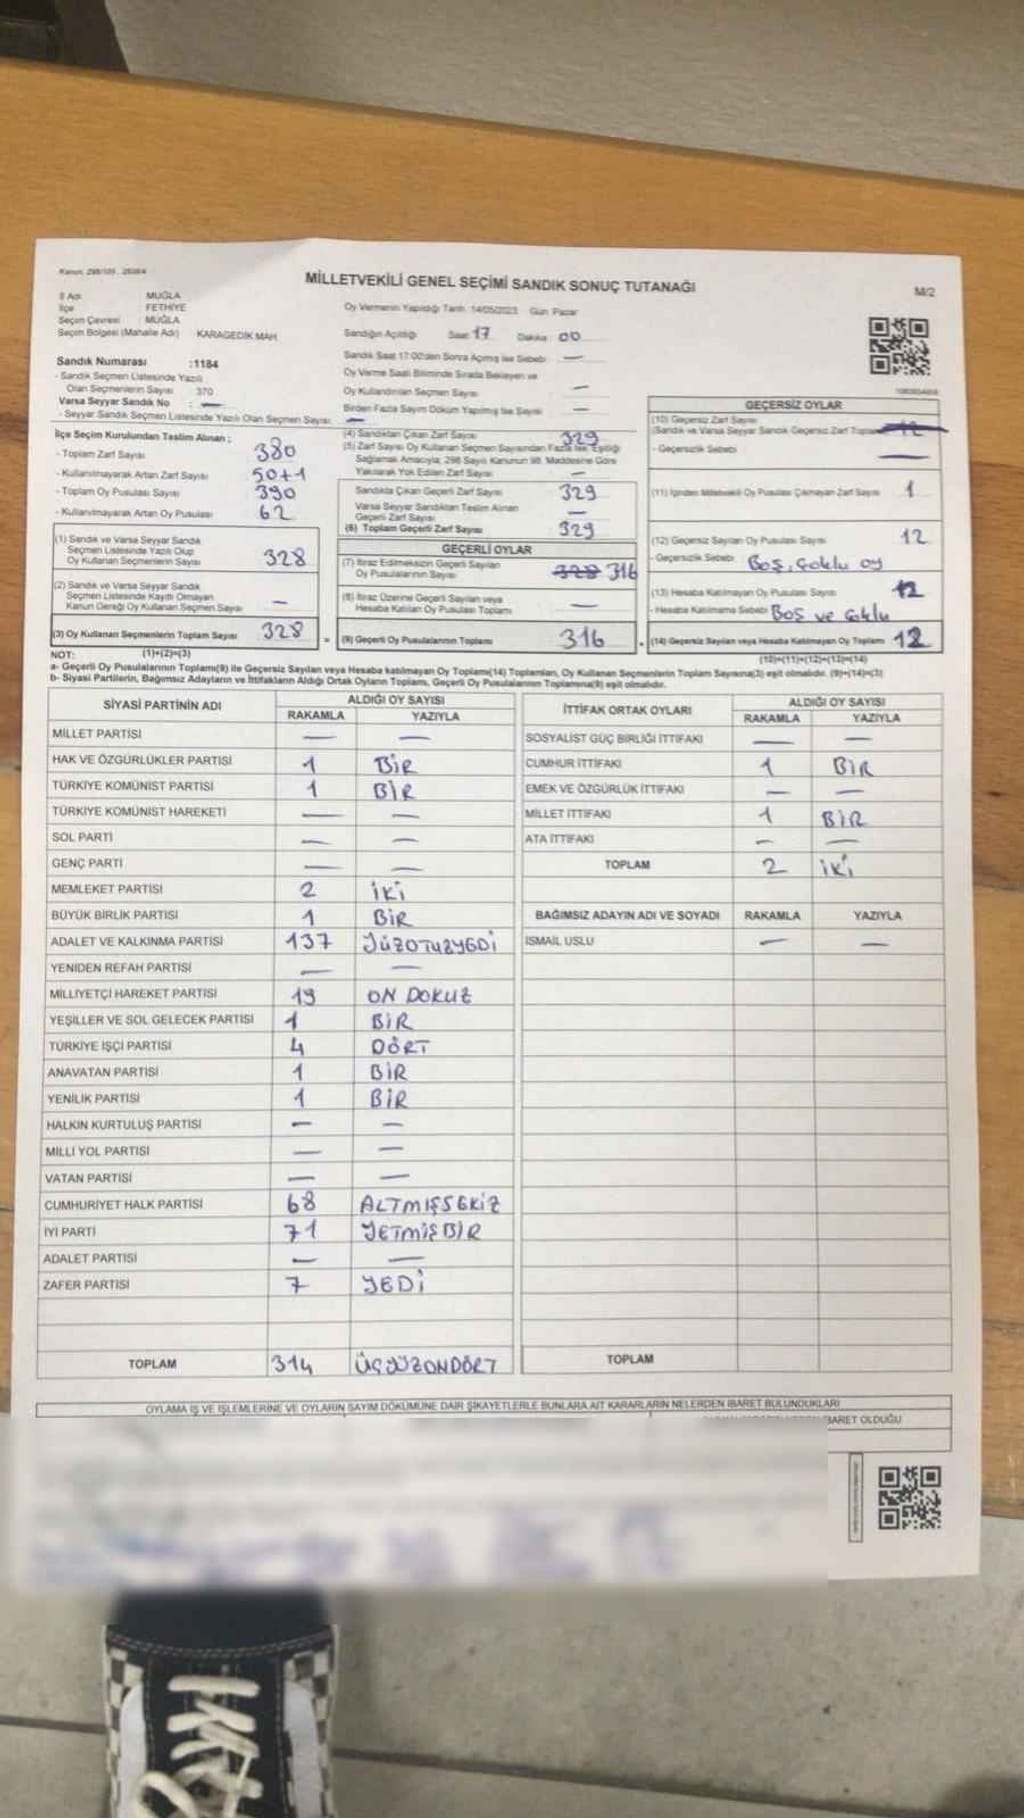 Kanun: 298/105
MİLLETVEKİLİ GENEL SEÇİMİ SANDIK SONUÇ TUTANAĞI
M/2
İl Adı MUĞLA
İlçe FETHİYE
Seçim Çevresi MUĞLA
Seçim Bölgesi (Mahalle Adı) KARAGEDİK MAH
Oy Vermenin Yapıldığı Tarih 14/05/2023 Gün Pazar
Sandığın Açıldığı Saat 17 Dakika 00
Sandık Saat 17:00'den Sonra Açılmış İse Sebebi —
Oy Verme Saati Bitiminde Sırada Bekleyen ve
Oy Kullandırılan Seçmen Sayısı —
Birden Fazla Sayım Döküm Yapılmış İse Sayısı —
Sandık Numarası :1184
- Sandık Seçmen Listesinde Yazılı
Olan Seçmenlerin Sayısı : 370
Varsa Seyyar Sandık No : —
- Seyyar Sandık Seçmen Listesinde Yazılı Olan Seçmen Sayısı: —
İlçe Seçim Kurulundan Teslim Alınan ;
- Toplam Zarf Sayısı 380
- Kullanılmayarak Artan Zarf Sayısı 50+1
- Toplam Oy Pusulası Sayısı 390
- Kullanılmayarak Artan Oy Pusulası 62
(1) Sandık ve Varsa Seyyar Sandık
Seçmen Listesinde Yazılı Olup
Oy Kullanan Seçmenlerin Sayısı 328
(2) Sandık ve Varsa Seyyar Sandık
Seçmen Listesinde Kayıtlı Olmayan
Kanun Gereği Oy Kullanan Seçmen Sayısı —
(3) Oy Kullanan Seçmenlerin Toplam Sayısı 328
(4) Sandıktan Çıkan Zarf Sayısı 329
(5) Zarf Sayısı Oy Kullanan Seçmen Sayısından Fazla İse, Eşitliği
Sağlamak Amacıyla, 298 Sayılı Kanunun 98. Maddesine Göre
Yakılarak Yok Edilen Zarf Sayısı —
Sandıkta Çıkan Geçerli Zarf Sayısı 329
Varsa Seyyar Sandıktan Teslim Alınan
Geçerli Zarf Sayısı —
(6) Toplam Geçerli Zarf Sayısı 329
GEÇERLİ OYLAR
(7) İtiraz Edilmeksizin Geçerli Sayılan
Oy Pusulalarının Sayısı 328 316
(8) İtiraz Üzerine Geçerli Sayılan veya
Hesaba Katılan Oy Pusulası Toplamı —
= (9) Geçerli Oy Pusulalarının Toplamı 316
GEÇERSİZ OYLAR
(10) Geçersiz Zarf Sayısı
(Sandık ve Varsa Seyyar Sandık Geçersiz Zarf Toplamı) 12
- Geçersizlik Sebebi —
(11) İçinden Milletvekili Oy Pusulası Çıkmayan Zarf Sayısı 1
(12) Geçersiz Sayılan Oy Pusulası Sayısı 12
- Geçersizlik Sebebi Boş, Çoklu oy
(13) Hesaba Katılmayan Oy Pusulası Sayısı 12
- Hesaba Katılmama Sebebi Boş ve Çoklu
+ (14) Geçersiz Sayılan veya Hesaba Katılmayan Oy Toplamı 12
NOT: (1)+(2)=(3)
(10)+(11)+(12)+(13)=(14)
a- Geçerli Oy Pusulalarının Toplamı(9) ile Geçersiz Sayılan veya Hesaba katılmayan Oy Toplamı(14) Toplamları, Oy Kullanan Seçmenlerin Toplam Sayısına(3) eşit olmalıdır. (9)+(14)=(3)
b- Siyasi Partilerin, Bağımsız Adayların ve İttifakların Aldığı Ortak Oyların Toplamı, Geçerli Oy Pusulalarının Toplamına(9) eşit olmalıdır.
SİYASİ PARTİNİN ADI ALDIĞI OY SAYISI
RAKAMLA YAZIYLA
MİLLET PARTİSİ — —
HAK VE ÖZGÜRLÜKLER PARTİSİ 1 BİR
TÜRKİYE KOMÜNİST PARTİSİ 1 BİR
TÜRKİYE KOMÜNİST HAREKETİ — —
SOL PARTİ — —
GENÇ PARTİ — —
MEMLEKET PARTİSİ 2 İKİ
BÜYÜK BİRLİK PARTİSİ 1 BİR
ADALET VE KALKINMA PARTİSİ 137 YÜZOTUZYEDİ
YENİDEN REFAH PARTİSİ — —
MİLLİYETÇİ HAREKET PARTİSİ 19 ON DOKUZ
YEŞİLLER VE SOL GELECEK PARTİSİ 1 BİR
TÜRKİYE İŞÇİ PARTİSİ 4 DÖRT
ANAVATAN PARTİSİ 1 BİR
YENİLİK PARTİSİ 1 BİR
HALKIN KURTULUŞ PARTİSİ — —
MİLLİ YOL PARTİSİ — —
VATAN PARTİSİ — —
CUMHURİYET HALK PARTİSİ 68 ALTMIŞSEKİZ
İYİ PARTİ 71 YETMİŞBİR
ADALET PARTİSİ — —
ZAFER PARTİSİ 7 YEDİ
TOPLAM 314 ÜÇYÜZONDÖRT
İTTİFAK ORTAK OYLARI ALDIĞI OY SAYISI
RAKAMLA YAZIYLA
SOSYALİST GÜÇ BİRLİĞİ İTTİFAKI — —
CUMHUR İTTİFAKI 1 BİR
EMEK VE ÖZGÜRLÜK İTTİFAKI — —
MİLLET İTTİFAKI 1 BİR
ATA İTTİFAKI — —
TOPLAM 2 İKİ
BAĞIMSIZ ADAYIN ADI VE SOYADI RAKAMLA YAZIYLA
İSMAİL USLU — —
TOPLAM
OYLAMA İŞ VE İŞLEMLERİNE VE OYLARIN SAYIM DÖKÜMÜNE DAİR ŞİKAYETLERLE BUNLARA AİT KARARLARIN NELERDEN İBARET BULUNDUKLARI
İBARET OLDUĞU